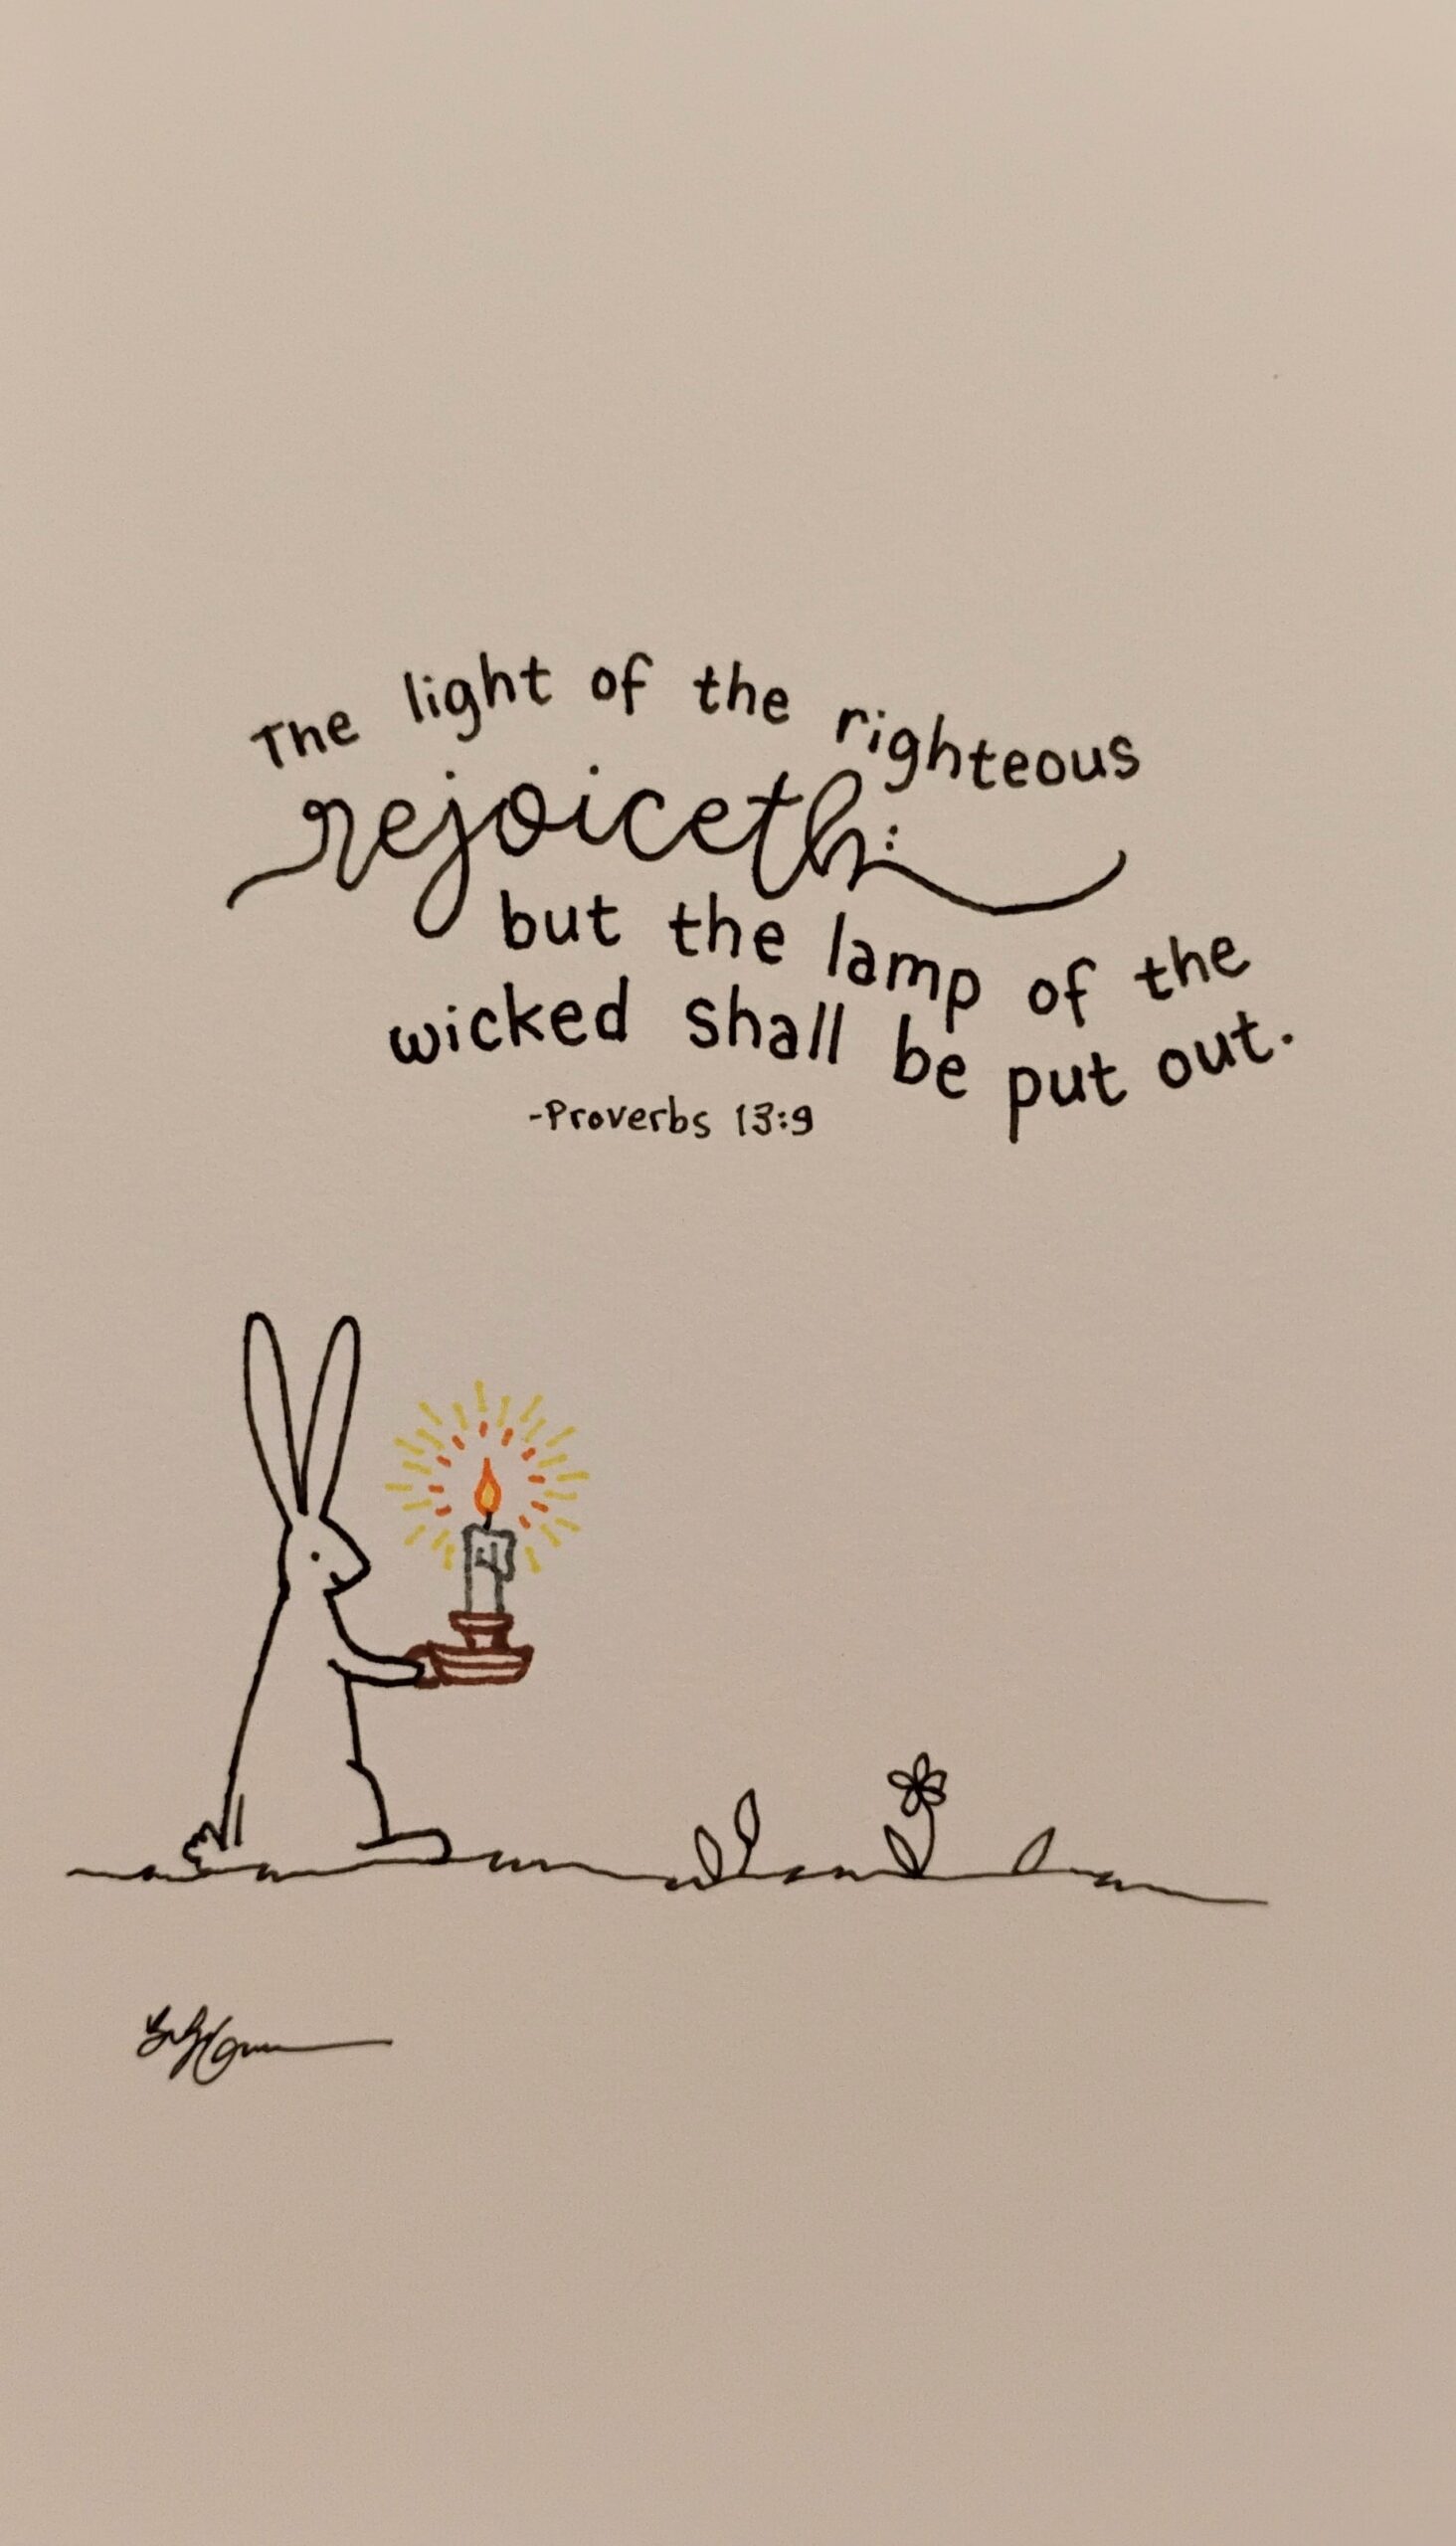 The light of the righteous
rejoiceth:
but the lamp of the
wicked shall be put out.
-Proverbs 13:9